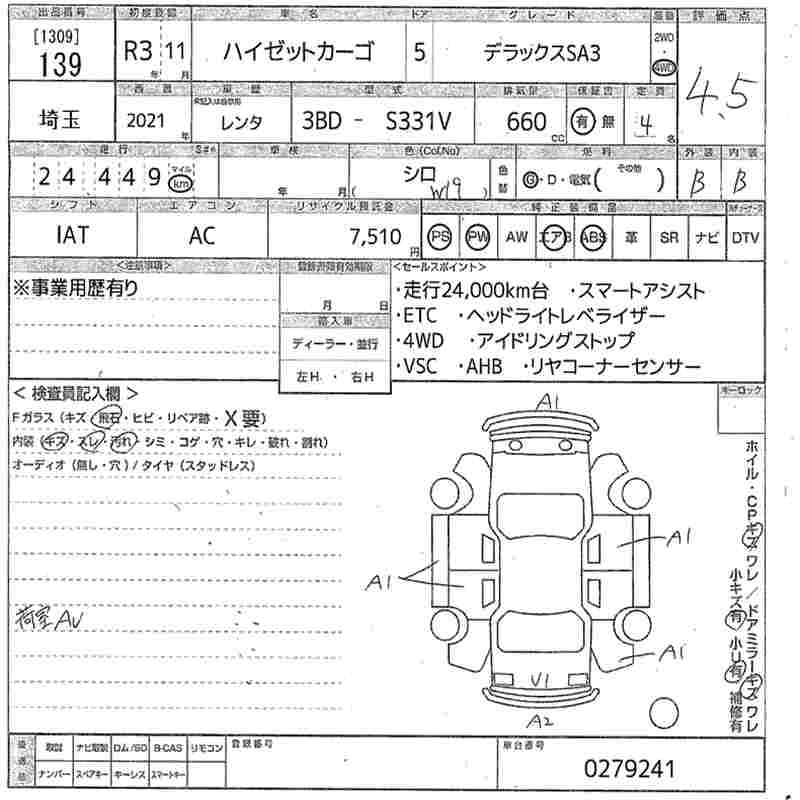 出品番号 初度登録 車名 ドア グレード 駆動 評価点
[1309]
139
R3年 11月 ハイゼットカーゴ 5 デラックスSA3 2WD・4WD 4.5
西暦 車歴 型式 排気量 保証書 定員
埼玉 2021年 レンタ 3BD - S331V 660cc 有 無 4名
走行 車検 色(Col.No) 色替 燃料 外装 内装
24449 マイル km 年 月 シロ ( W19 ) G・D・電気( その他 ) B B
シフト エアコン リサイクル預託金 純正装備品
IAT AC 7,510円 PS PW AW エアB ABS 革 SR ナビ DTV
<注意事項> <セールスポイント>
※事業用歴有り 月 日 ・走行24,000km台 ・スマートアシスト
輸入車 ・ETC ・ヘッドライトレベライザー
ディーラー・並行 ・4WD ・アイドリングストップ
左H. ・ 右H ・VSC ・AHB ・リヤコーナーセンサー
< 検査員記入欄 > キーロック
Fガラス (キズ・飛石・ヒビ・リペア跡・X要)
内装 (キズ・スレ・汚れ・シミ・コゲ・穴・キレ・破れ・割れ)
オーディオ (無し・穴) / タイヤ (スタッドレス)
荷室AU
A1
A1
A1
A1
V1
A2
ホイル・CPキズワレ / ドアミラーキズワレ
小キズ有 小U有 補修有
取説 ナビ取説 ロム/SD B-CAS リモコン 登録番号 車台番号
ナンバー スペアキー キーレス スマートキー 0279241